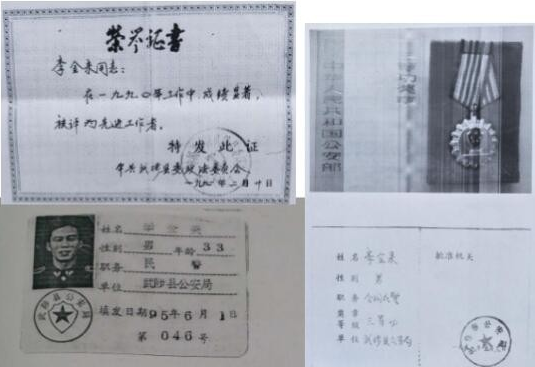 荣誉证书
李全来同志：
在一九九〇年工作中，成绩显著，
被评为先进工作者。
特发此证
中共武陟县委政法委员会
一九九一年二月 日
姓名
性别 男 年龄 33
职务 民警
单位 武陟县公安局
填发日期 95年6月1日
第 046 号
武陟县公安局
中华人民共和国公安部
姓名 李全来
性别 男
职务
奖章
等级 三等功
单位 武陟县公安局
批准机关